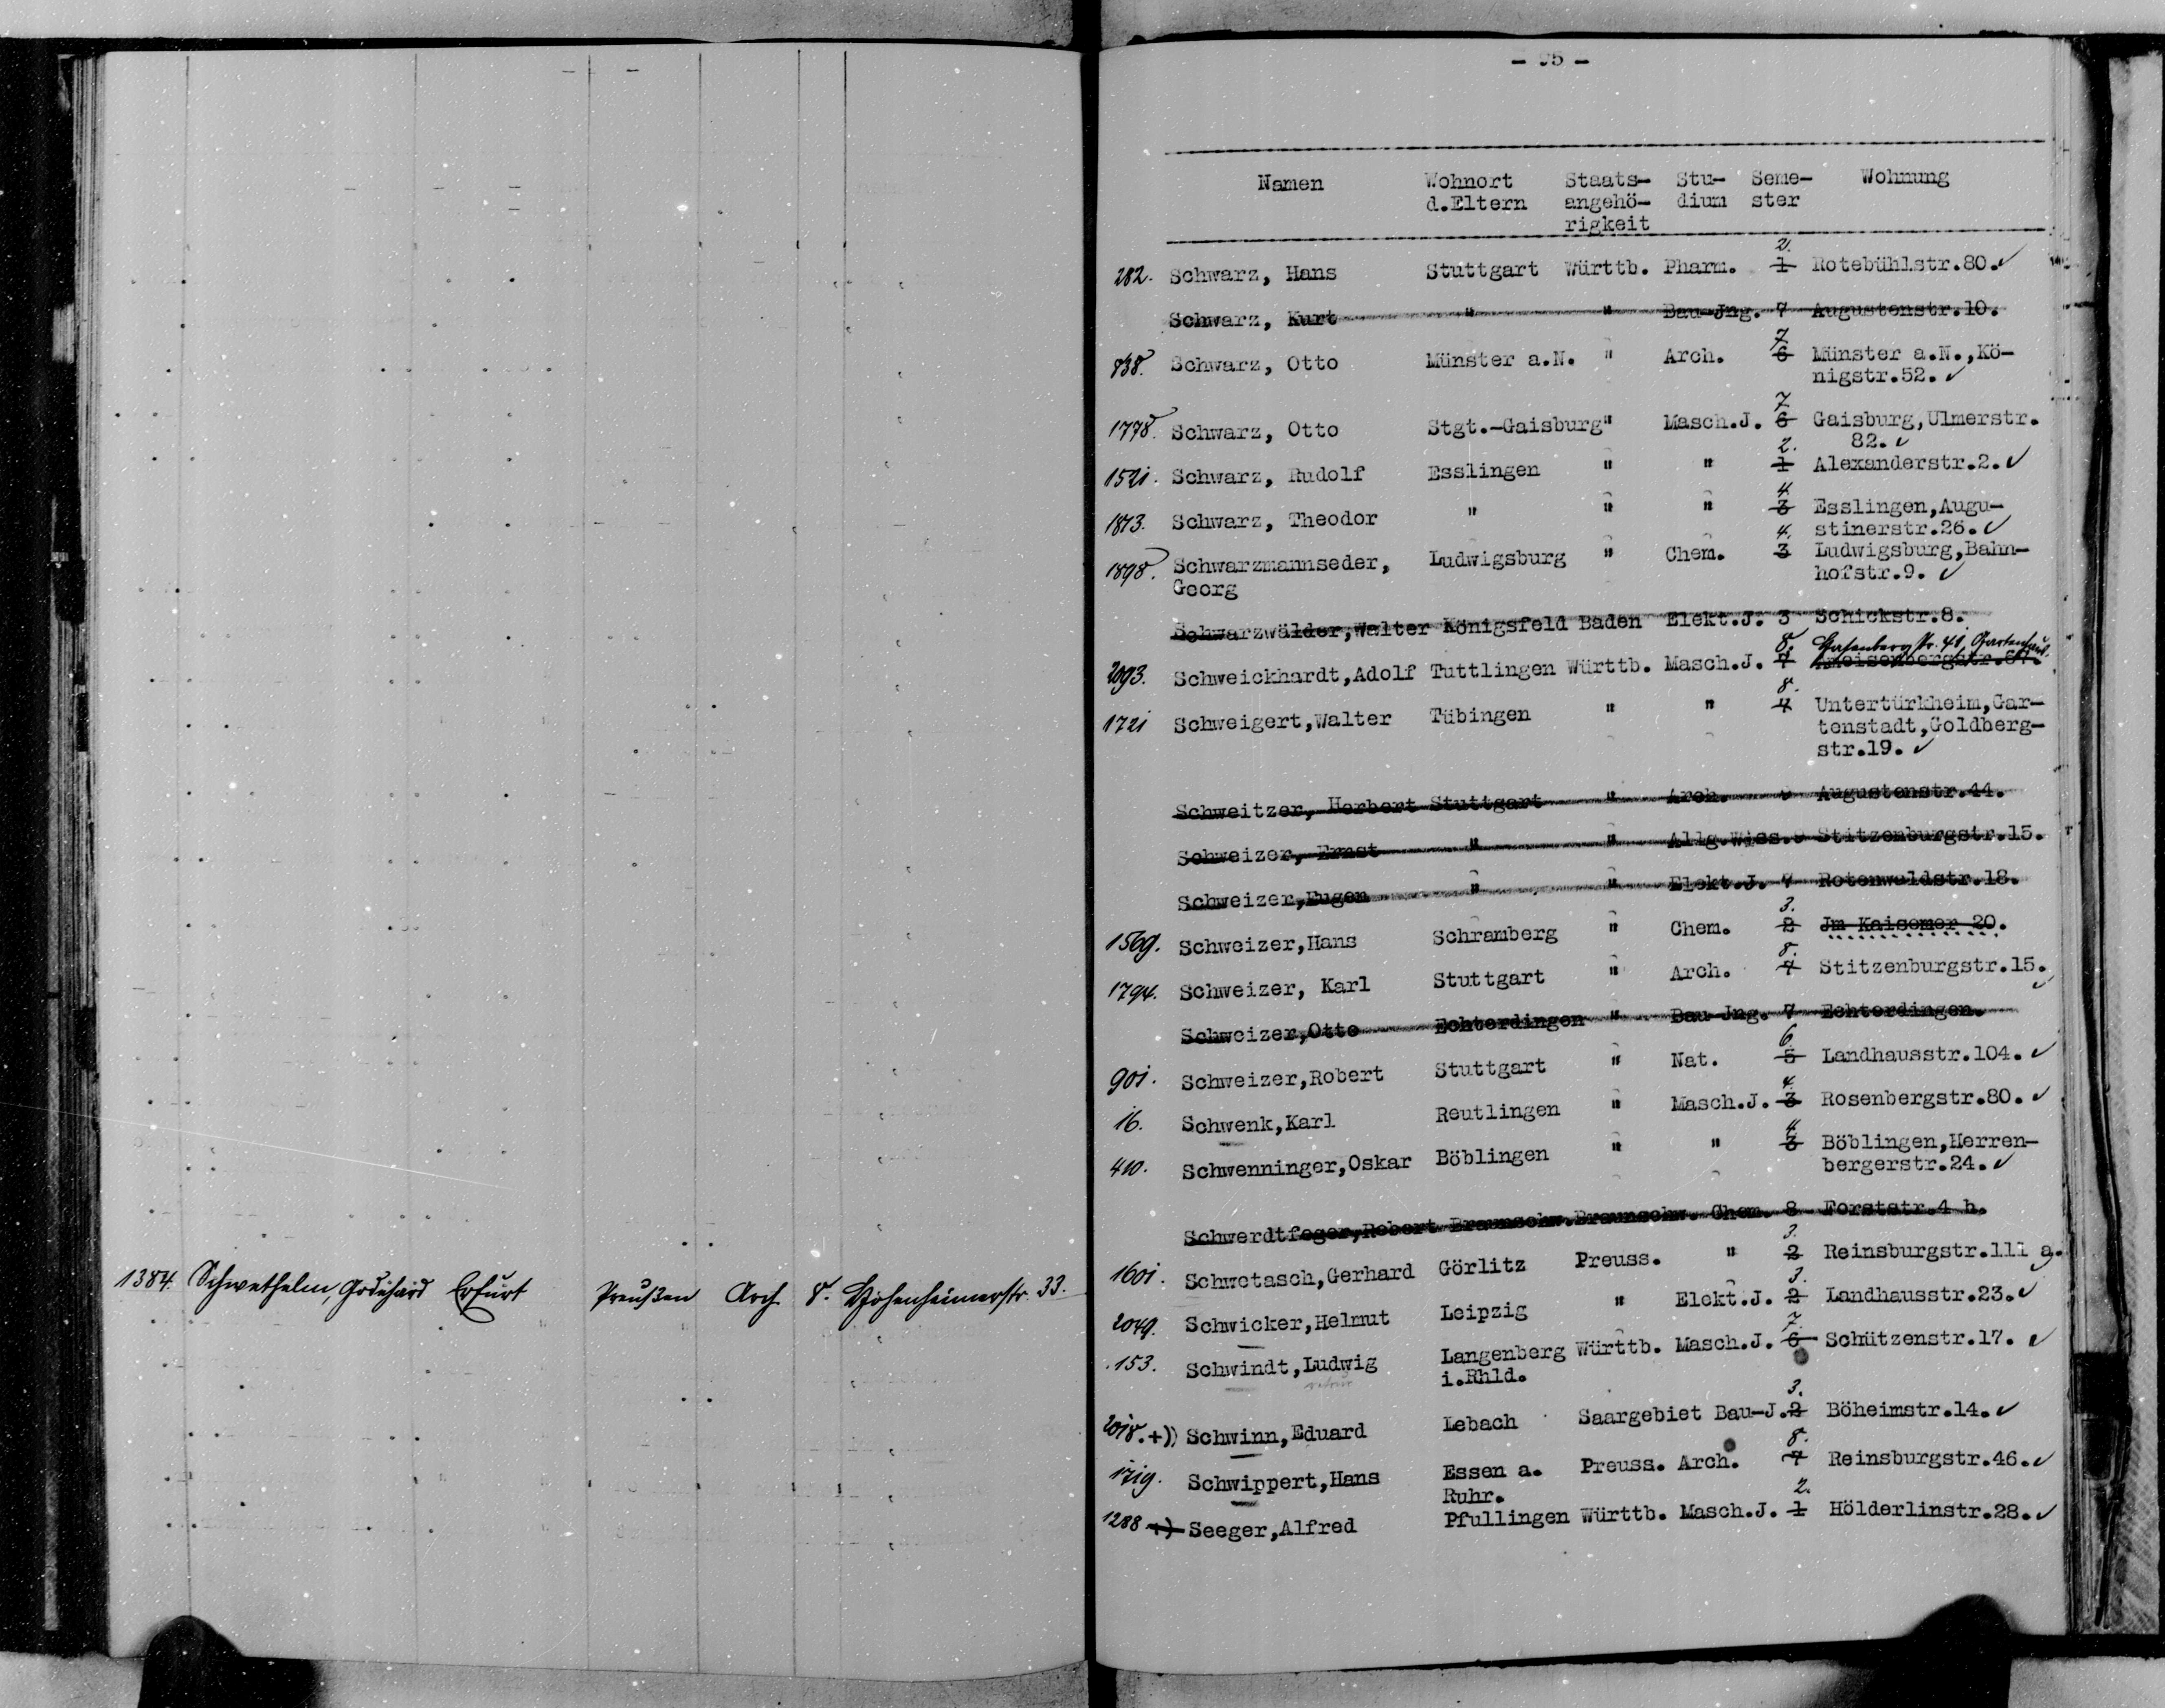 1384. Schwethelm, Godehard Erfurt Preußen Arch 8. Hohenheimerstr. 33.
- 95 -
Namen Wohnort Staats- Stu- Seme- Wohnung
d.Eltern angehö- dium ster
rigkeit
2.
282. Schwarz, Hans Stuttgart Württb. Pharm. 1 Rotebühlstr.80.✓
Schwarz, Kurt " " Bau-Jng. 7 Augustenstr.10.
7
838. Schwarz, Otto Münster a.N. " Arch. 6 Münster a.N.,Kö-
nigstr.52. ✓
7
1778. Schwarz, Otto Stgt.-Gaisburg" Masch.J. 6 Gaisburg,Ulmerstr.
82. ✓
2.
1521. Schwarz, Rudolf Esslingen " " 1 Alexanderstr.2. ✓
4.
1873. Schwarz, Theodor " " " 3 Esslingen,Augu-
stinerstr.26. ✓
4.
1898. Schwarzmannseder, Ludwigsburg " Chem. 3 Ludwigsburg,Bahn-
Georg hofstr.9. ✓
Schwarzwälder,Walter Königsfeld Baden Elekt.J. 3 Schickstr.8.
8. Hasenbergstr. 49, Gartenhaus.
2093. Schweickhardt,Adolf Tuttlingen Württb. Masch.J. 7
8.
1721 Schweigert,Walter Tübingen " " 7 Untertürkheim,Gar-
tenstadt,Goldberg-
str.19. ✓
Schweitzer, Herbert Stuttgart " Arch. Augustenstr.44.
Schweizer, Ernst " " Allg.Wies. Stitzenburgstr.15.
Schweizer,Eugen " " Elekt.J. 7 Rotenwaldstr.18.
3.
1569. Schweizer,Hans Schramberg " Chem. 2 Jm Kaisemer 20.
8.
1794. Schweizer, Karl Stuttgart " Arch. 7 Stitzenburgstr.15. ✓
Schweizer,Otto Echterdingen " Bau-Jng. 7 Echterdingen.
6
901. Schweizer,Robert Stuttgart " Nat. 5 Landhausstr.104. ✓
4.
16. Schwenk,Karl Reutlingen " Masch.J. 3 Rosenbergstr.80. ✓
4
410. Schwenninger,Oskar Böblingen " " 3 Böblingen,Herren-
bergerstr.24. ✓
Schwerdtfeger,Robert Braunschw.Braunschw. Chem. 8 Forststr.4 b.
3.
1601. Schwetasch,Gerhard Görlitz Preuss. " 2 Reinsburgstr.111 a.
3.
2049. Schwicker,Helmut Leipzig " Elekt.J. 2 Landhausstr.23.✓
7.
153. Schwindt,Ludwig Langenberg Württb. Masch.J. 6 Schützenstr.17. ✓
i.Rhld.
3.
2018.+)) Schwinn,Eduard Lebach Saargebiet Bau-J.2 Böheimstr.14. ✓
8.
1719. Schwippert,Hans Essen a. Preuss. Arch. 7 Reinsburgstr.46.✓
Ruhr.
2.
1288 +) Seeger,Alfred Pfullingen Württb. Masch.J. 1 Hölderlinstr.28.✓